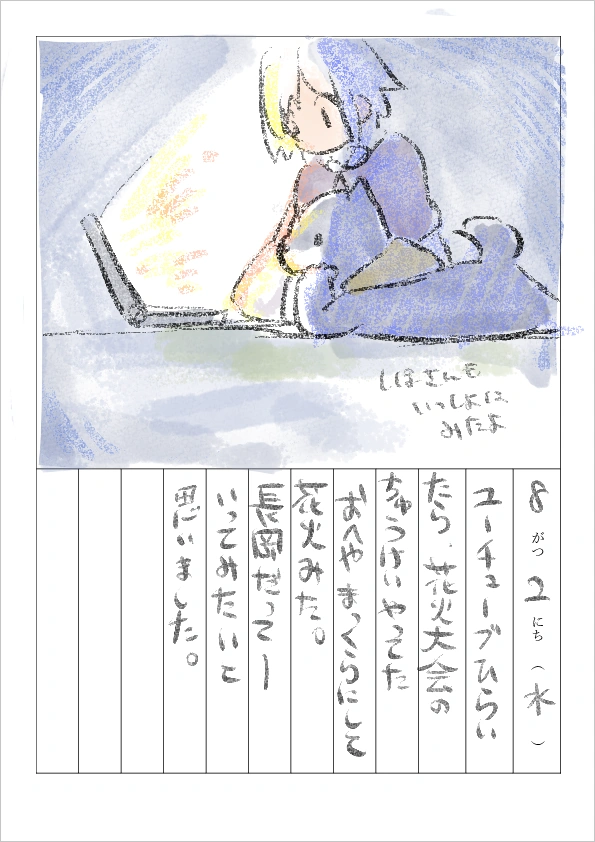 しばさんも
いっしょに
みたよ
8がつ2にち(水)
ユーチューブひらい
たら、花火大会の
ちゅうけいやってた
おへやまっくらにして
花火みた。
長岡だってー
いってみたいと
思いました。